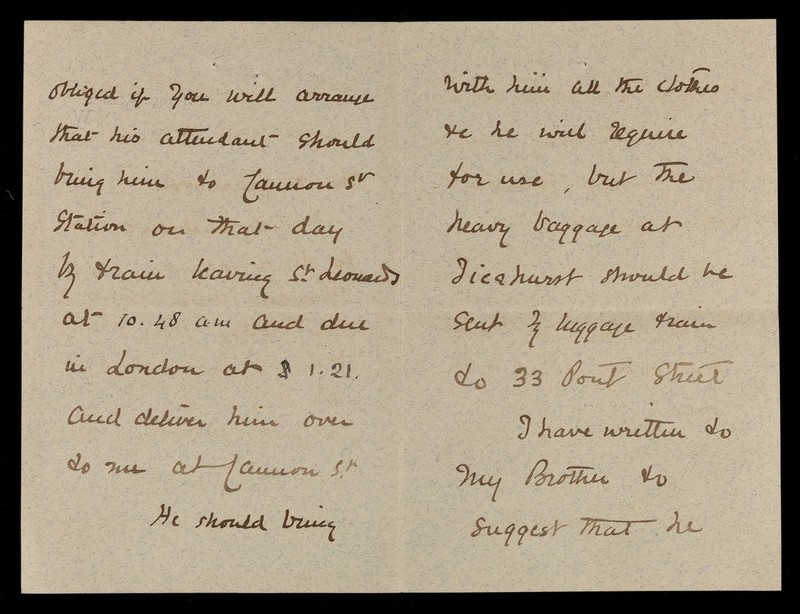 obliged if you will arrange
that his attendant should
bring him to Cannon St
Station on that day
by train leaving St. Leonards
at 10.48 am and due
in London at 1.21.
and deliver him over
to me at Cannon St.
He should bring
with him all the clothes
&c he will require
for use, but the
heavy baggage at
Ticehurst should be
sent by luggage train
to 33 Pont Street
I have written to
my Brother to
suggest that he